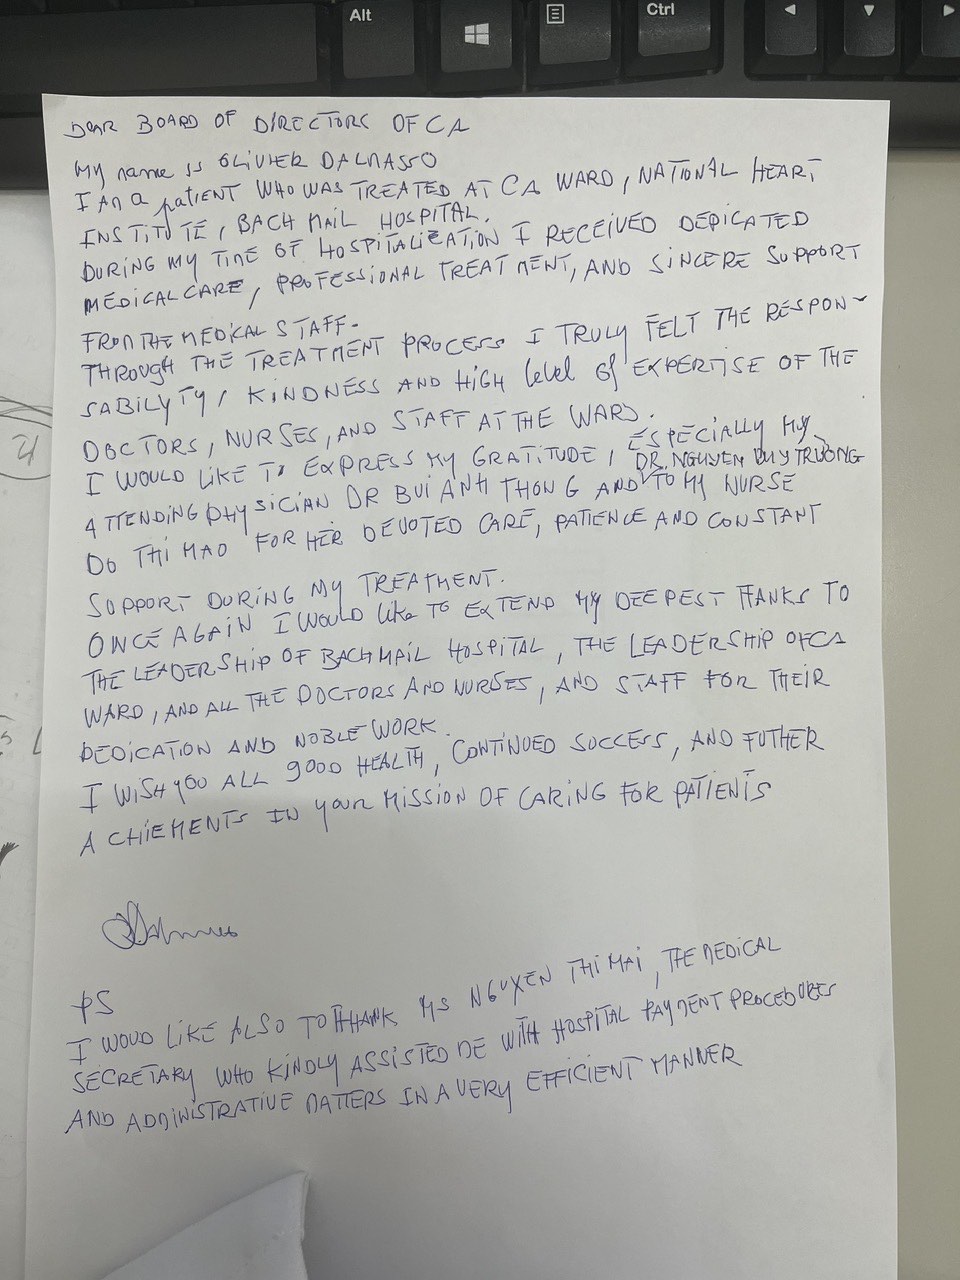 Alt
Ctrl
DEAR BOARD OF DIRECTORS OF CA
My name is OLIVIER DALMASSO
I AM a patient WHO WAS TREATED AT CA WARD, NATIONAL HEART
INSTITUTE, BACH MAIL HOSPITAL.
DURING MY TIME OF HOSPITALIZATION I RECEIVED DEDICATED
MEDICAL CARE, PROFESSIONAL TREATMENT, AND SINCERE SUPPORT
FROM THE MEDICAL STAFF.
THROUGH THE TREATMENT PROCESS I TRULY FELT THE RESPON-
SABILYTY, KINDNESS AND HIGH level of EXPERTISE OF THE
DOCTORS, NURSES, AND STAFF AT THE WARD.
I WOULD LIKE TO EXPRESS MY GRATITUDE, ESPECIALLY MY
ATTENDING PHYSICIAN DR BUI ANH THONG AND DR. NGUYEN DUY TRUONG TO MY NURSE
DO THI MAO FOR HER DEVOTED CARE, PATIENCE AND CONSTANT
SUPPORT DURING MY TREATMENT.
ONCE AGAIN I WOULD like TO EXTEND MY DEEPEST THANKS TO
THE LEADERSHIP OF BACH MAIL HOSPITAL, THE LEADERSHIP OF CA
WARD, AND ALL THE DOCTORS AND NURSES, AND STAFF FOR THEIR
DEDICATION AND NOBLE WORK.
I WISH YOU ALL good HEALTH, CONTINUED SUCCESS, AND FUTHER
ACHIEMENTS IN your MISSION OF CARING FOR PATIENTS
PS
I WOUD LIKE ALSO TO THANK MS NGUYEN THI MAI, THE MEDICAL
SECRETARY WHO KINDLY ASSISTED ME WITH HOSPITAL PAYMENT PROCEDURES
AND ADMINISTRATIVE MATTERS IN A VERY EFFICIENT MANNER